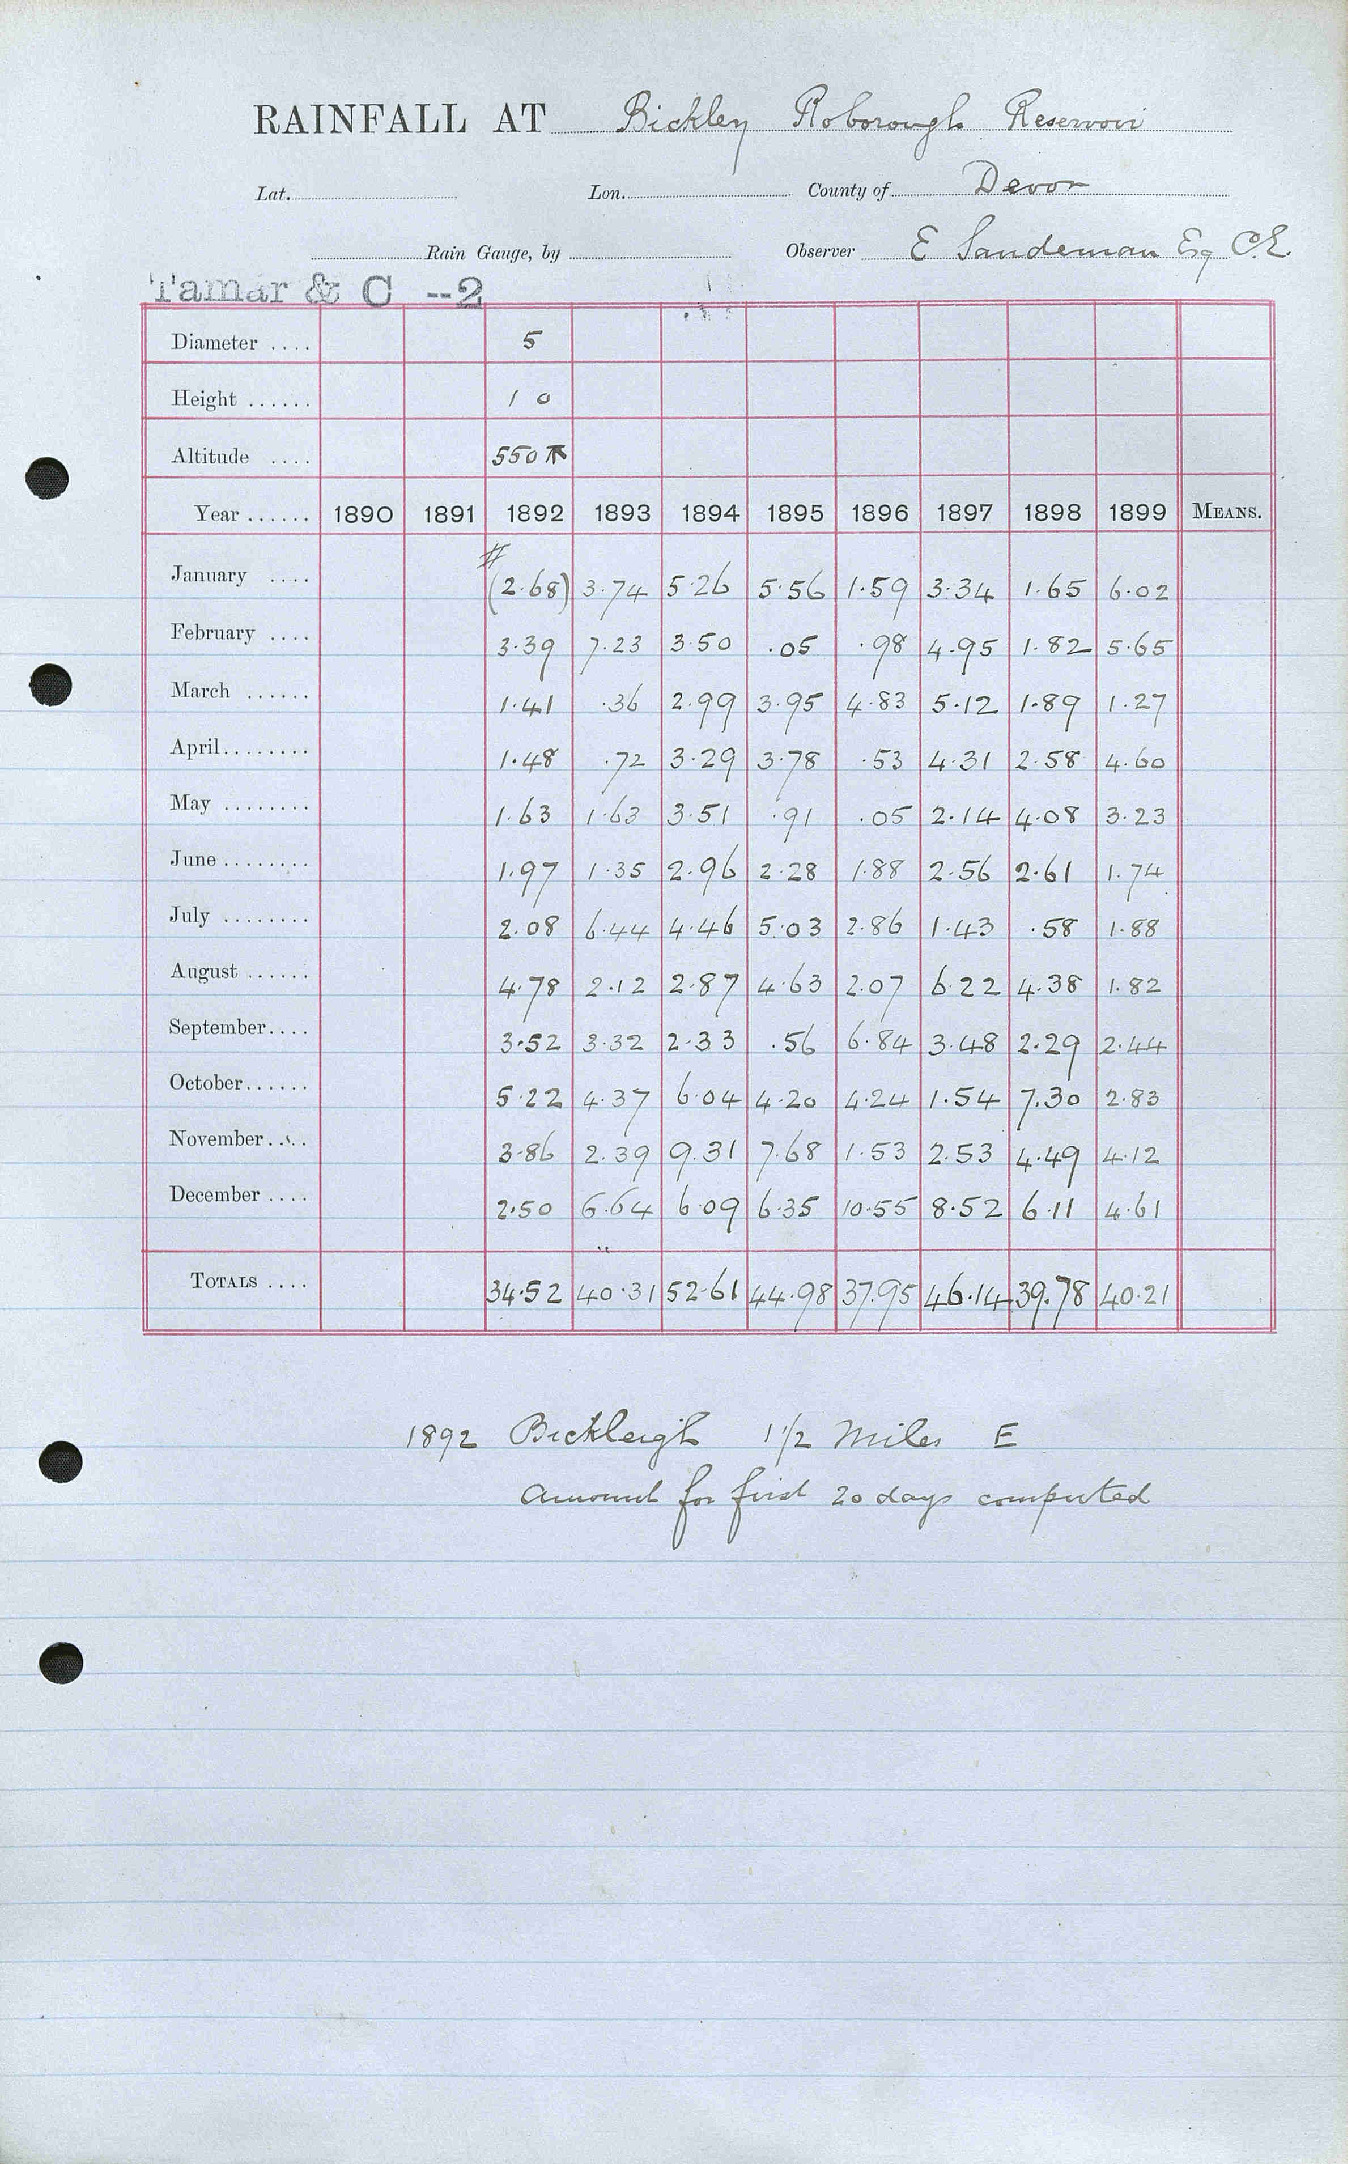 RAINFALL AT Bickley Roborough Reservoir
Lat. Lon. County of Devon
Rain Gauge, by Observer E Sandeman Esq C.E
Tamar & C --2
Diameter .... 5
Height ...... 1 0
Altitude .... 550
Year ...... 1890 1891 1892 1893 1894 1895 1896 1897 1898 1899 MEANS.
#
January .... (2.68) 3.74 5.26 5.56 1.59 3.34 1.65 6.02
February .... 3.39 7.23 3.50 .05 .98 4.95 1.82 5.65
March ...... 1.41 .36 2.99 3.95 4.83 5.12 1.89 1.27
April........ 1.48 .72 3.29 3.78 .53 4.31 2.58 4.60
May ........ 1.63 1.63 3.51 .91 .05 2.14 4.08 3.23
June ........ 1.97 1.35 2.96 2.28 1.88 2.56 2.61 1.74
July ........ 2.08 6.44 4.46 5.03 2.86 1.43 .58 1.88
August ...... 4.78 2.12 2.87 4.63 2.07 6.22 4.38 1.82
September.... 3.52 3.32 2.33 .56 6.84 3.48 2.29 2.44
October...... 5.22 4.37 6.04 4.20 4.24 1.54 7.30 2.83
November.... 3.86 2.39 9.31 7.68 1.53 2.53 4.49 4.12
December .... 2.50 6.64 6.09 6.35 10.55 8.52 6.11 4.61
TOTALS .... 34.52 40.31 52.61 44.98 37.95 46.14 39.78 40.21
1892 Bickleigh 1 1/2 Miles E
Amount for first 20 days computed